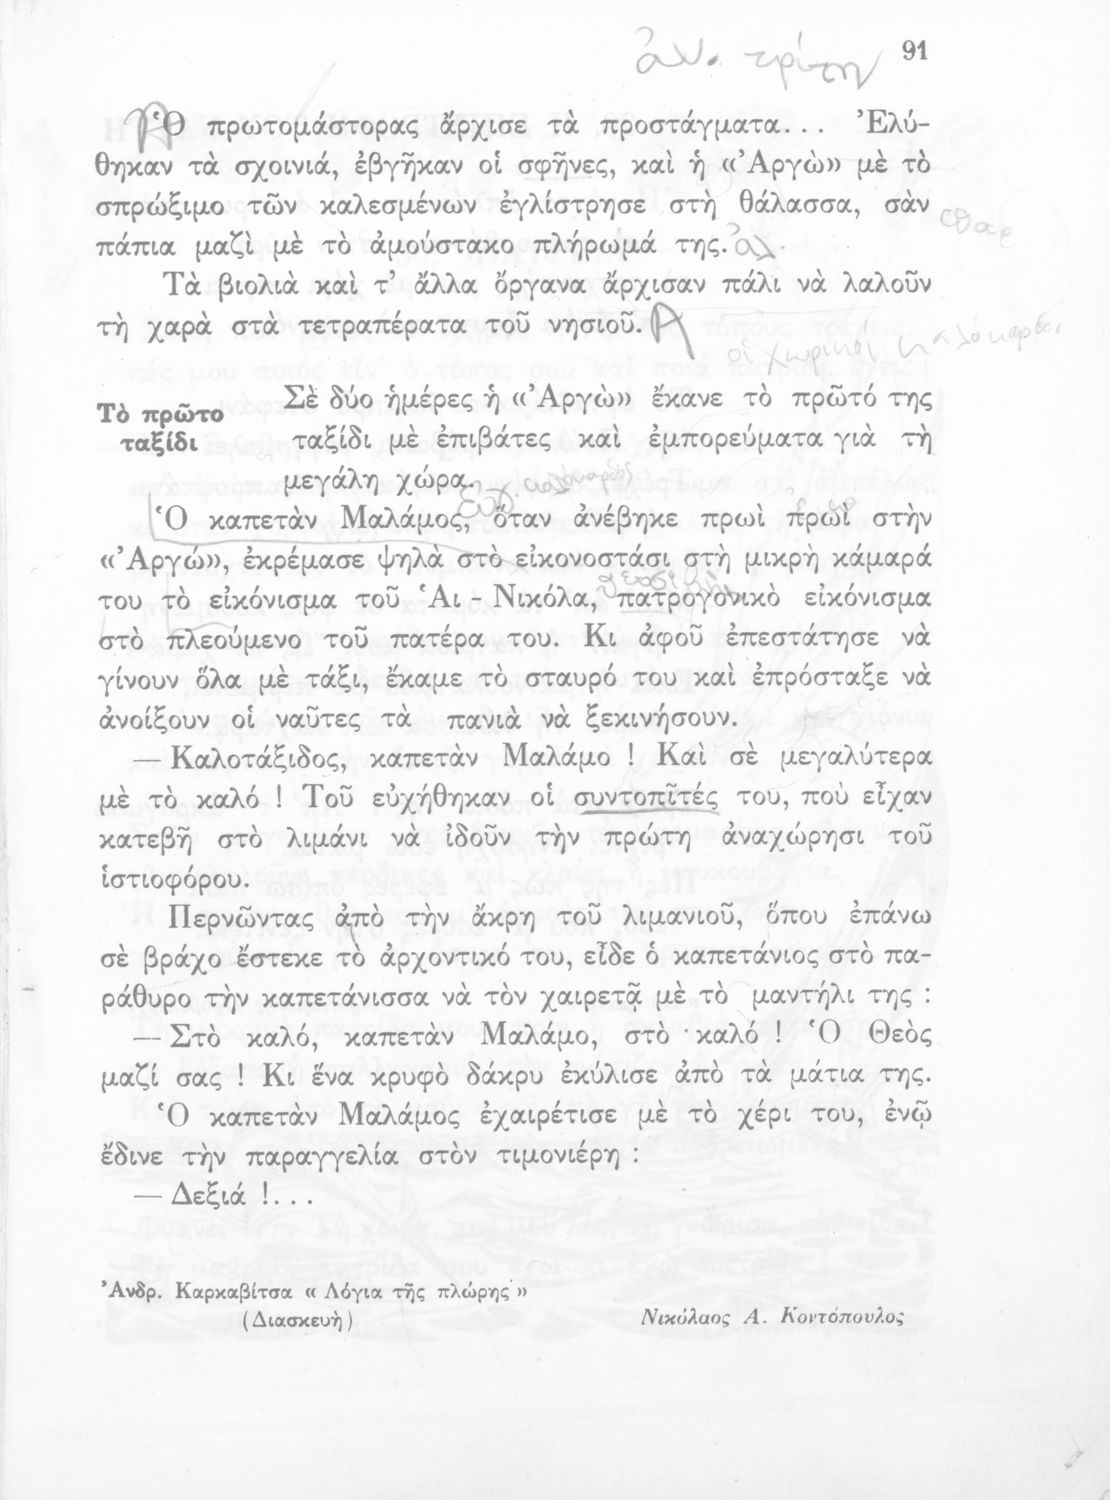 91
Ὁ πρωτομάστορας ἄρχισε τὰ προστάγματα... Ἐλύ-
θηκαν τὰ σχοινιά, ἐβγῆκαν οἱ σφῆνες, καὶ ἡ «Ἀργὼ» μὲ τὸ
σπρώξιμο τῶν καλεσμένων ἐγλίστρησε στὴ θάλασσα, σὰν
πάπια μαζὶ μὲ τὸ ἀμούστακο πλήρωμά της.
Τὰ βιολιὰ καὶ τ' ἄλλα ὄργανα ἄρχισαν πάλι νὰ λαλοῦν
τὴ χαρὰ στὰ τετραπέρατα τοῦ νησιοῦ.
Τὸ πρῶτο
ταξίδι
Σὲ δύο ἡμέρες ἡ «Ἀργὼ» ἔκανε τὸ πρῶτό της
ταξίδι μὲ ἐπιβάτες καὶ ἐμπορεύματα γιὰ τὴ
μεγάλη χώρα.
Ὁ καπετὰν Μαλάμος, ὅταν ἀνέβηκε πρωὶ πρωὶ στὴν
«Ἀργώ», ἐκρέμασε ψηλὰ στὸ εἰκονοστάσι στὴ μικρὴ κάμαρά
του τὸ εἰκόνισμα τοῦ Ἁι - Νικόλα, πατρογονικὸ εἰκόνισμα
στὸ πλεούμενο τοῦ πατέρα του. Κι ἀφοῦ ἐπεστάτησε νὰ
γίνουν ὅλα μὲ τάξι, ἔκαμε τὸ σταυρό του καὶ ἐπρόσταξε νὰ
ἀνοίξουν οἱ ναῦτες τὰ πανιὰ νὰ ξεκινήσουν.
— Καλοτάξιδος, καπετὰν Μαλάμο ! Καὶ σὲ μεγαλύτερα
μὲ τὸ καλό ! Τοῦ εὐχήθηκαν οἱ συντοπῖτές του, ποὺ εἶχαν
κατεβῆ στὸ λιμάνι νὰ ἰδοῦν τὴν πρώτη ἀναχώρησι τοῦ
ἱστιοφόρου.
Περνῶντας ἀπὸ τὴν ἄκρη τοῦ λιμανιοῦ, ὅπου ἐπάνω
σὲ βράχο ἔστεκε τὸ ἀρχοντικό του, εἶδε ὁ καπετάνιος στὸ πα-
ράθυρο τὴν καπετάνισσα νὰ τὸν χαιρετᾷ μὲ τὸ μαντήλι της :
— Στὸ καλό, καπετὰν Μαλάμο, στὸ καλό ! Ὁ Θεὸς
μαζί σας ! Κι ἕνα κρυφὸ δάκρυ ἐκύλισε ἀπὸ τὰ μάτια της.
Ὁ καπετὰν Μαλάμος ἐχαιρέτισε μὲ τὸ χέρι του, ἐνῷ
ἔδινε τὴν παραγγελία στὸν τιμονιέρη :
— Δεξιά !...
Ἀνδρ. Καρκαβίτσα « Λόγια τῆς πλώρης »
(Διασκευὴ)
Νικόλαος Α. Κοντόπουλος